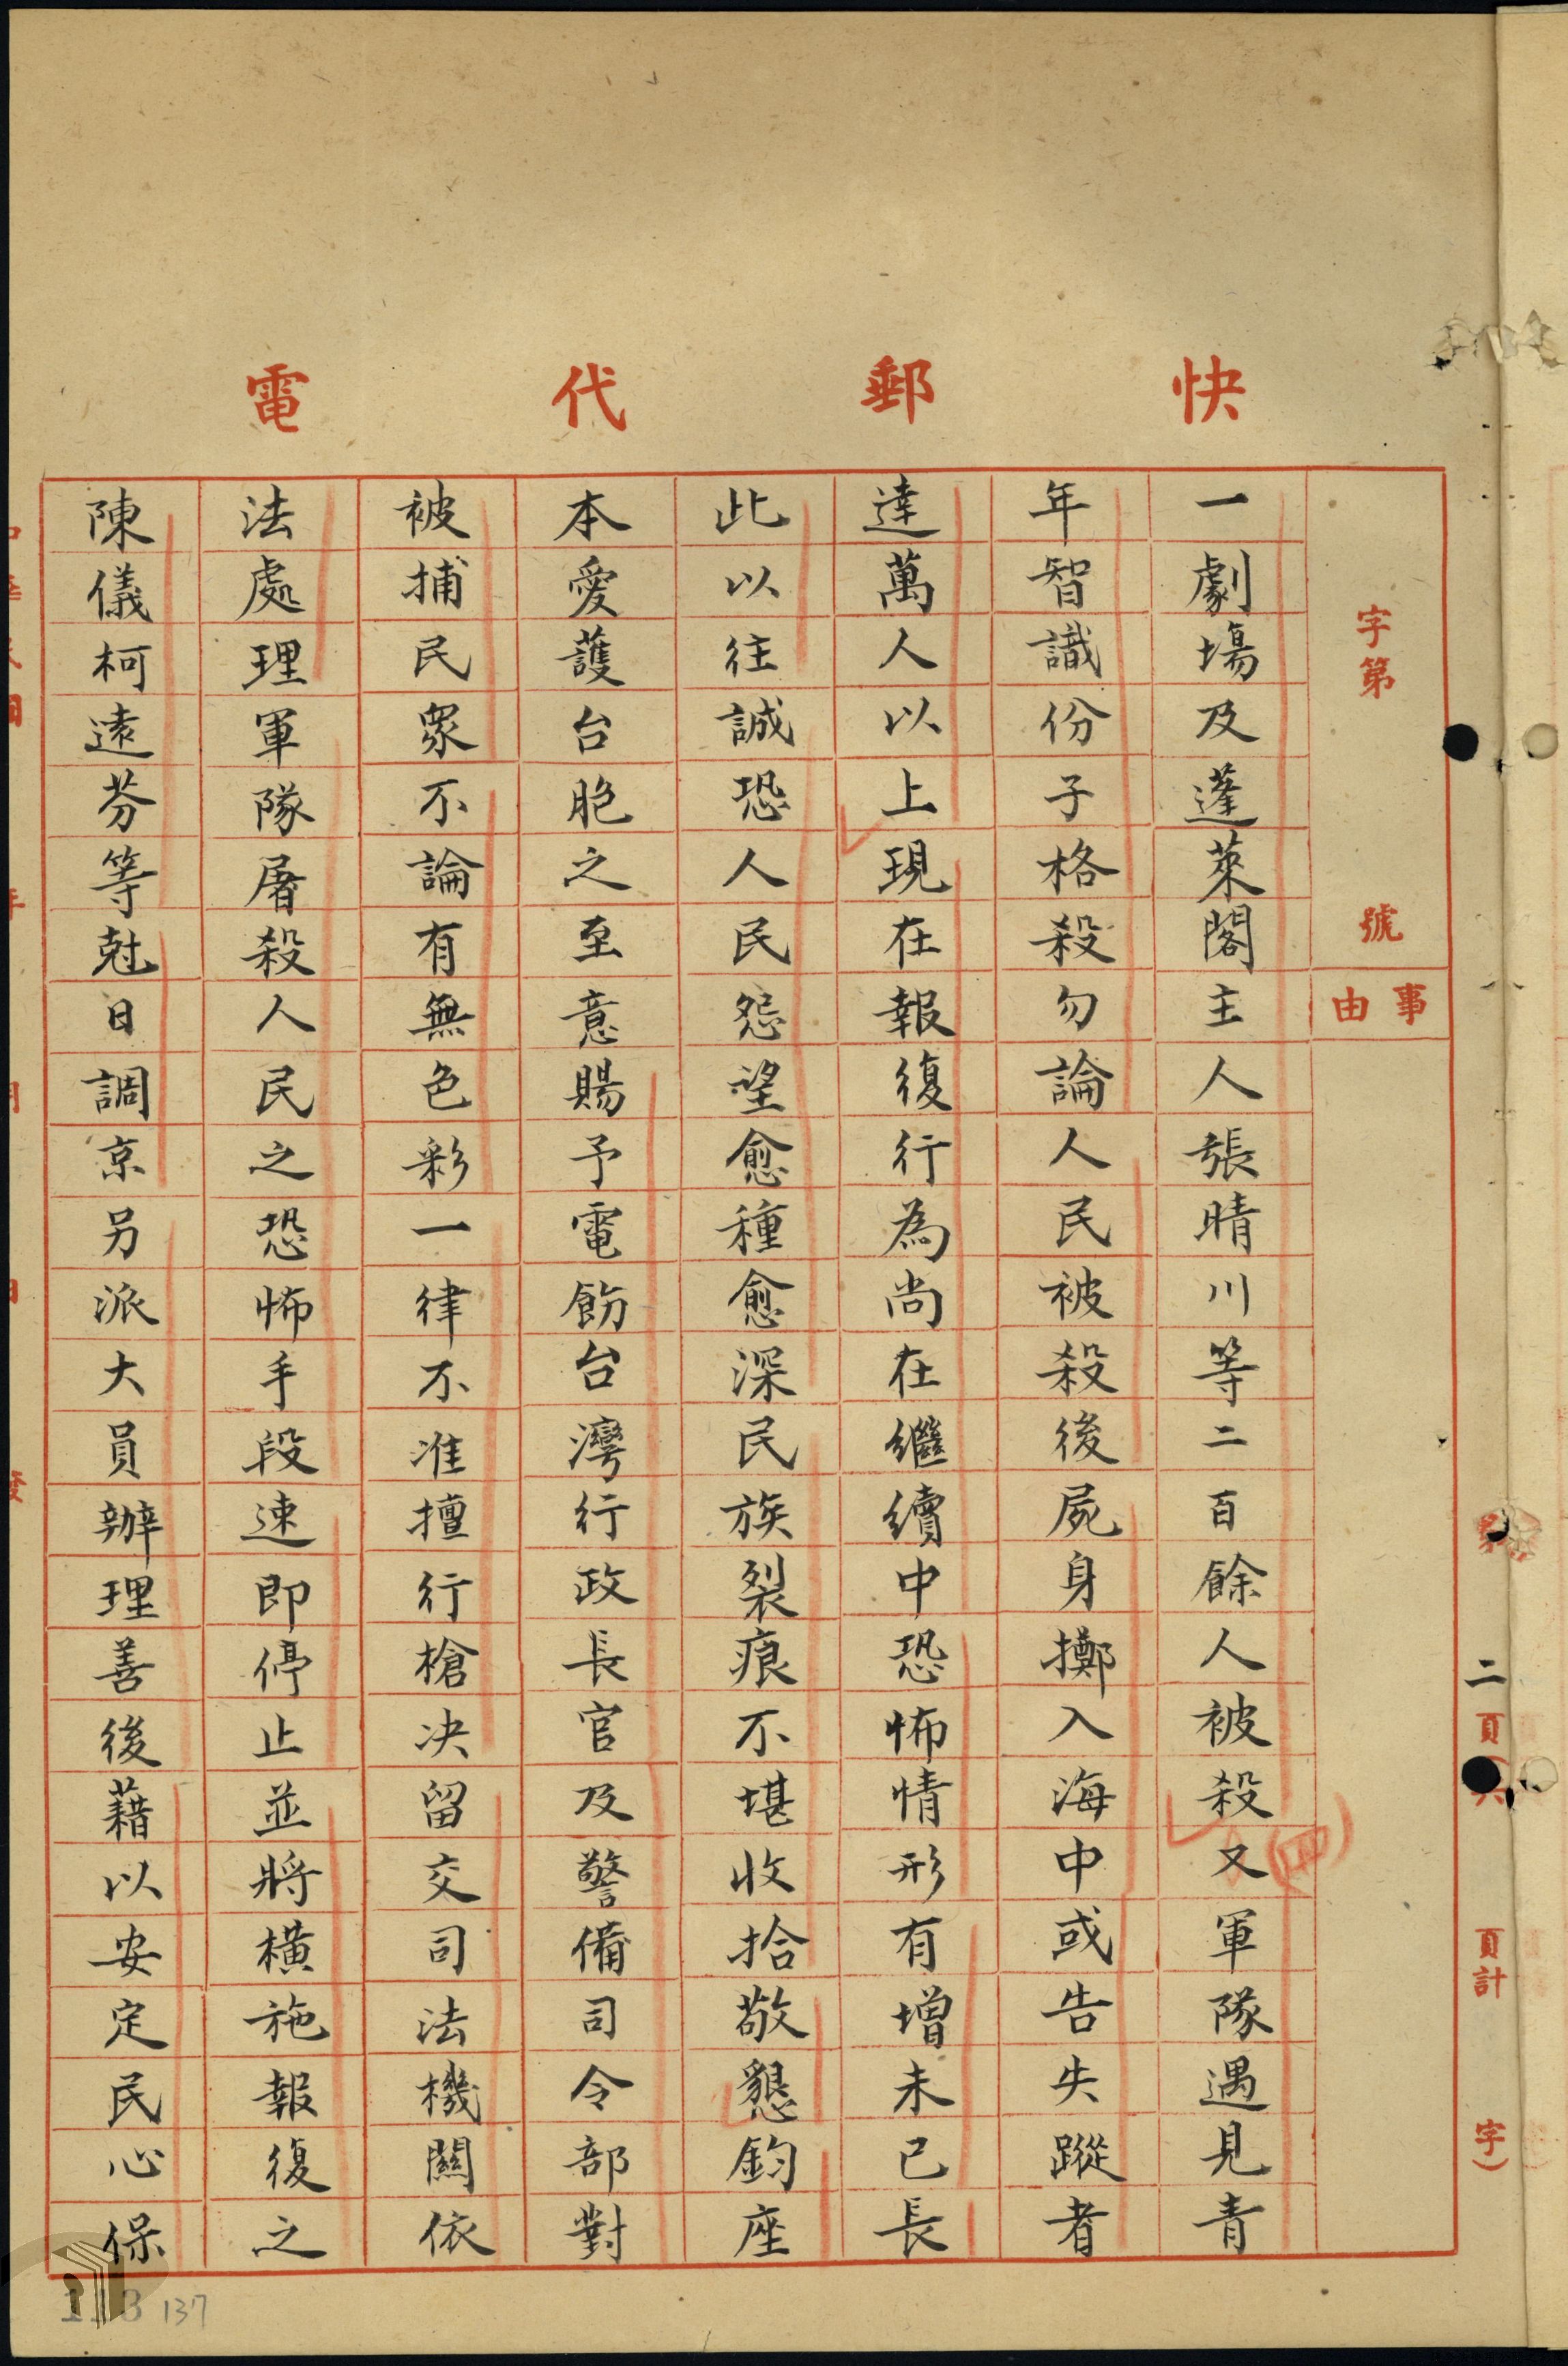 快郵代電
字第 號
事由
一劇場及蓬萊閣主人張晴川等二百餘人被殺又軍隊遇見青
(四)
年智識份子格殺勿論人民被殺後屍身擲入海中或告失蹤者
達萬人以上現在報復行為尚在繼續中恐怖情形有增未已長
此以往誠恐人民怨望愈種愈深民族裂痕不堪收拾敬懇鈞座
本愛護台胞之至意賜予電飭台灣行政長官及警備司令部對
被捕民眾不論有無色彩一律不准擅行槍决留交司法機關依
法處理軍隊屠殺人民之恐怖手段速即停止並將橫施報復之
陳儀柯遠芬等尅日調京另派大員辦理善後藉以安定民心保
二頁
頁計
字)
113 137